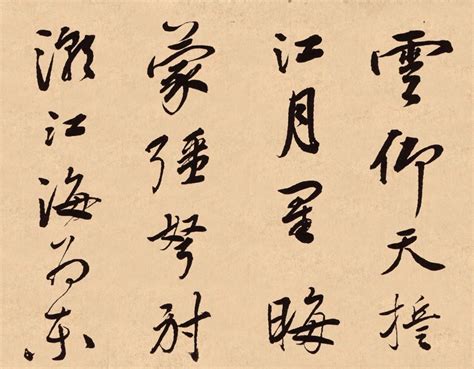 雲仰天
江月星晦
蒙彊弩射
潮江海為東